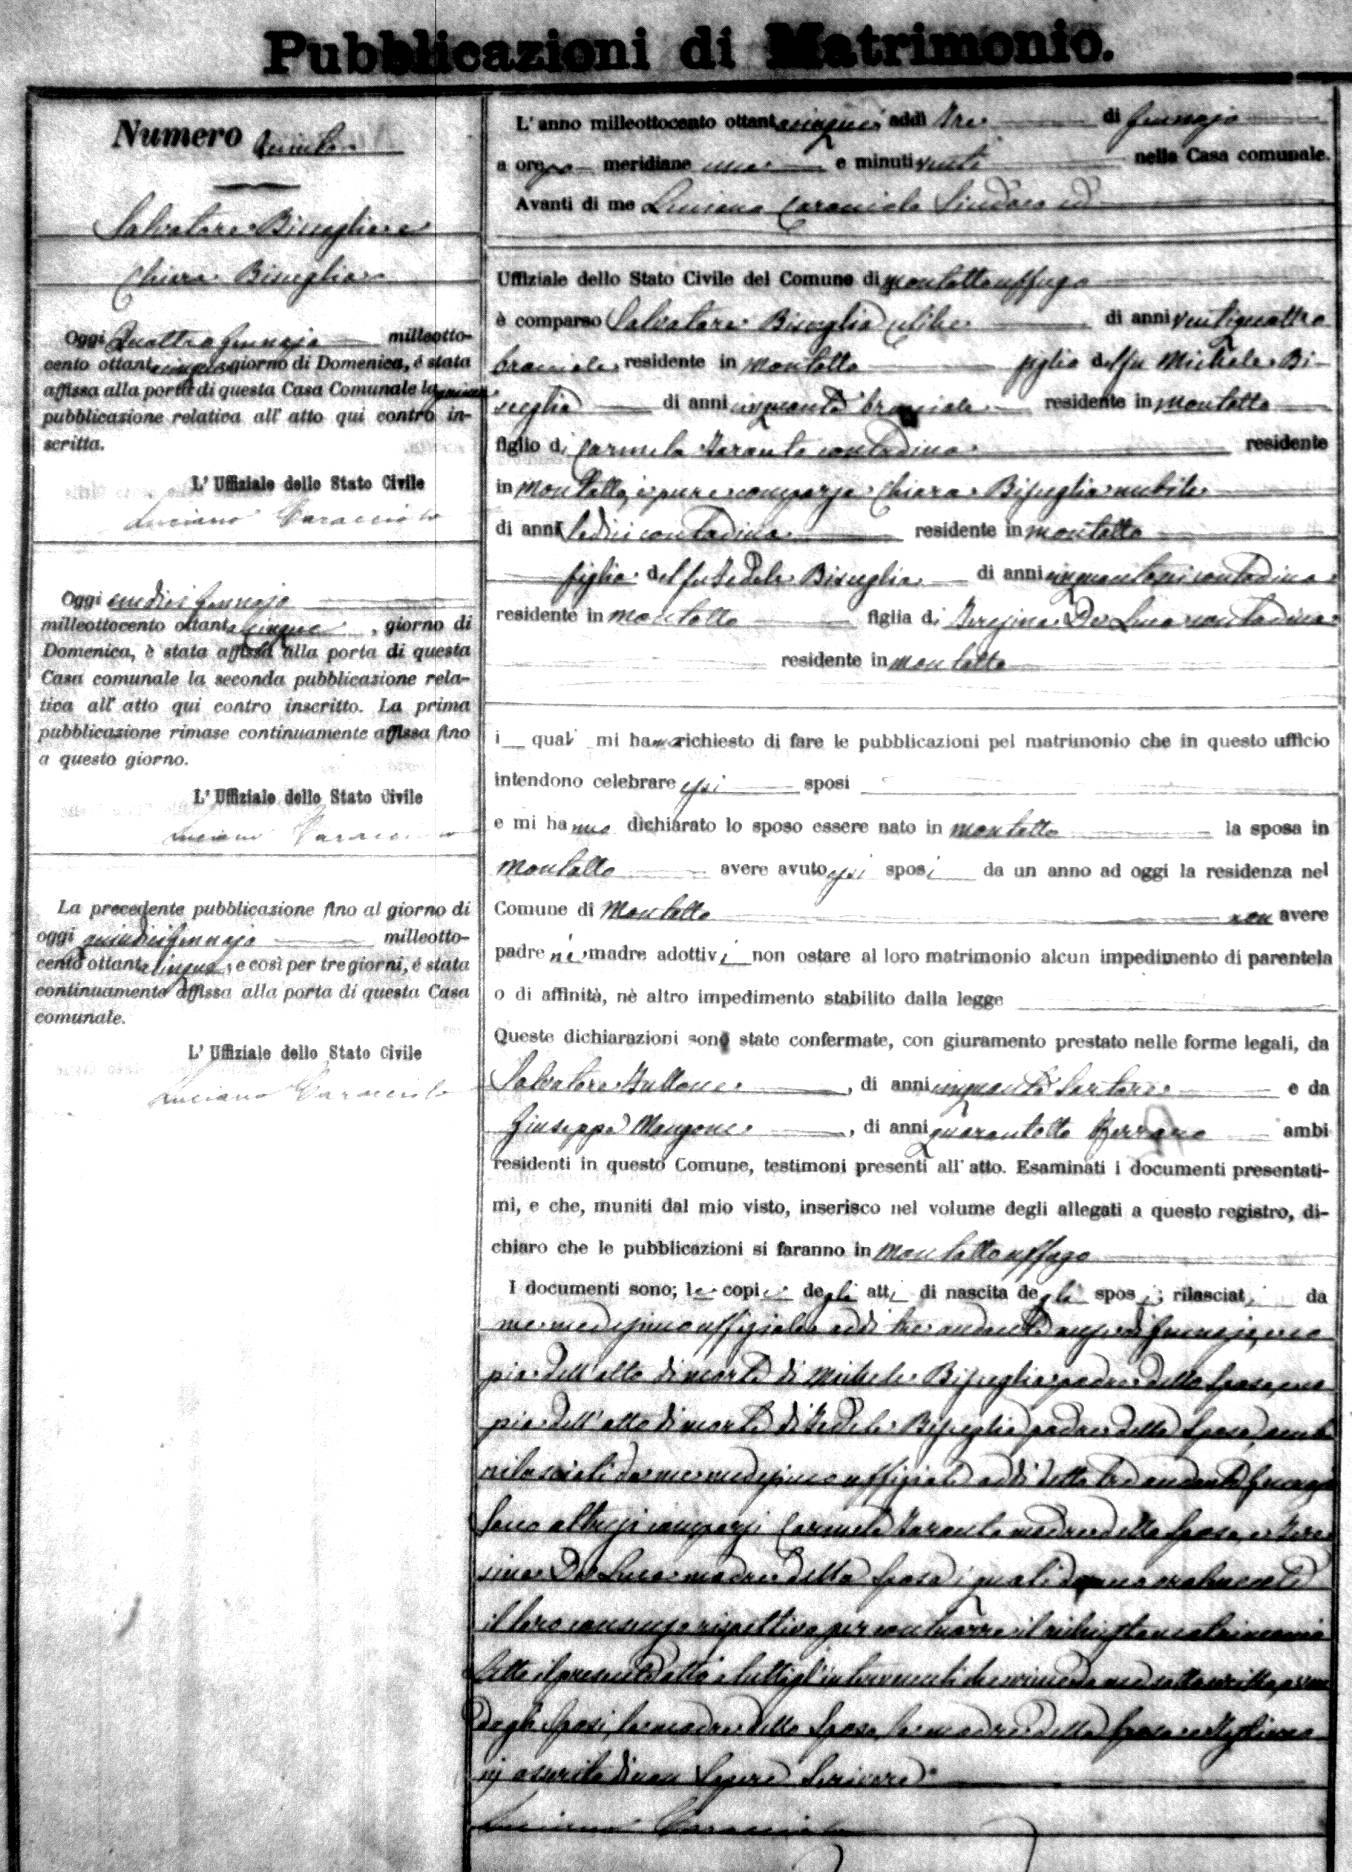 Pubblicazioni di Matrimonio.
Numero
Salvatore Bisceglia e
Chiara Bisceglia
Oggi Quattro Gennajo milleotto-
cento ottantacinque giorno di Domenica, è stata
affissa alla porta di questa Casa Comunale la
pubblicazione relativa all' atto qui contro in-
scritta.
L' Uffiziale dello Stato Civile
Luciano Caracciolo
Oggi undici Gennajo
milleottocento ottantacinque, giorno di
Domenica, è stata affissa alla porta di questa
Casa comunale la seconda pubblicazione rela-
tiva all' atto qui contro inscritto. La prima
pubblicazione rimase continuamente affissa fino
a questo giorno.
L' Uffiziale dello Stato Civile
Luciano Caracciolo
La precedente pubblicazione fino al giorno di
oggi quindici Gennajo milleotto-
cento ottantacinque, e così per tre giorni, è stata
continuamente affissa alla porta di questa Casa
comunale.
L' Uffiziale dello Stato Civile
Luciano Caracciolo
L' anno milleottocento ottantacinque addì tre di Gennajo
a ore po meridiane una e minuti venti nella Casa comunale.
Avanti di me Luciano Caracciolo Sindaco ed
Uffiziale dello Stato Civile del Comune di Montaltouffugo
è comparso Salvatore Bisceglia celibe di anni ventiquattro
bracciale residente in Montalto figlio del fu Michele Bi-
sceglia di anni cinquanta bracciale residente in Montalto
figlio di Carmela Tarante contadina residente
in Montalto, è pure comparsa Chiara Bisceglia nubile
di anni sedici contadina residente in Montalto
figlia del fu Fedele Bisceglia di anni contadina
residente in Montalto figlia di Teresina De Luca contadina
residente in Montalto
i quali mi hanno richiesto di fare le pubblicazioni pel matrimonio che in questo ufficio
intendono celebrare essi sposi
e mi hanno dichiarato lo sposo essere nato in Montalto la sposa in
Montalto avere avuto essi sposi da un anno ad oggi la residenza nel
Comune di Montalto non avere
padre nè madre adottivi non ostare al loro matrimonio alcun impedimento di parentela
o di affinità, nè altro impedimento stabilito dalla legge
Queste dichiarazioni sono state confermate, con giuramento prestato nelle forme legali, da
Salvatore di anni cinquanta Sartore e da
Giuseppe Mangone, di anni quarantotto Ferraro ambi
residenti in questo Comune, testimoni presenti all' atto. Esaminati i documenti presentati-
mi, e che, muniti dal mio visto, inserisco nel volume degli allegati a questo registro, di-
chiaro che le pubblicazioni si faranno in Montaltouffugo
I documenti sono; le copie degli atti di nascita degli sposi; rilasciati da
me medesimo uffiziale addì tre andante mese di Gennajo, co
pia dell'atto di morte di Michele Bisceglia padre dello sposo, co
pia dell'atto di morte di Fedele Bisceglia padre della sposa,
rilasciati da me medesimo uffiziale addì detto tre andante Gennajo
Sono altresì comparsi Carmela Tarante madre dello sposo, e Tere
sina De Luca madre della sposa i quali danno oralmente
il loro consenso rispettivo per contrarre il richiesto matrimonio
Letto il presente atto a tutti gl'intervenuti
degli sposi, la madre dello sposo, la madre della sposa e testimo
nj asserito di non sapere scrivere
Luciano Caracciolo